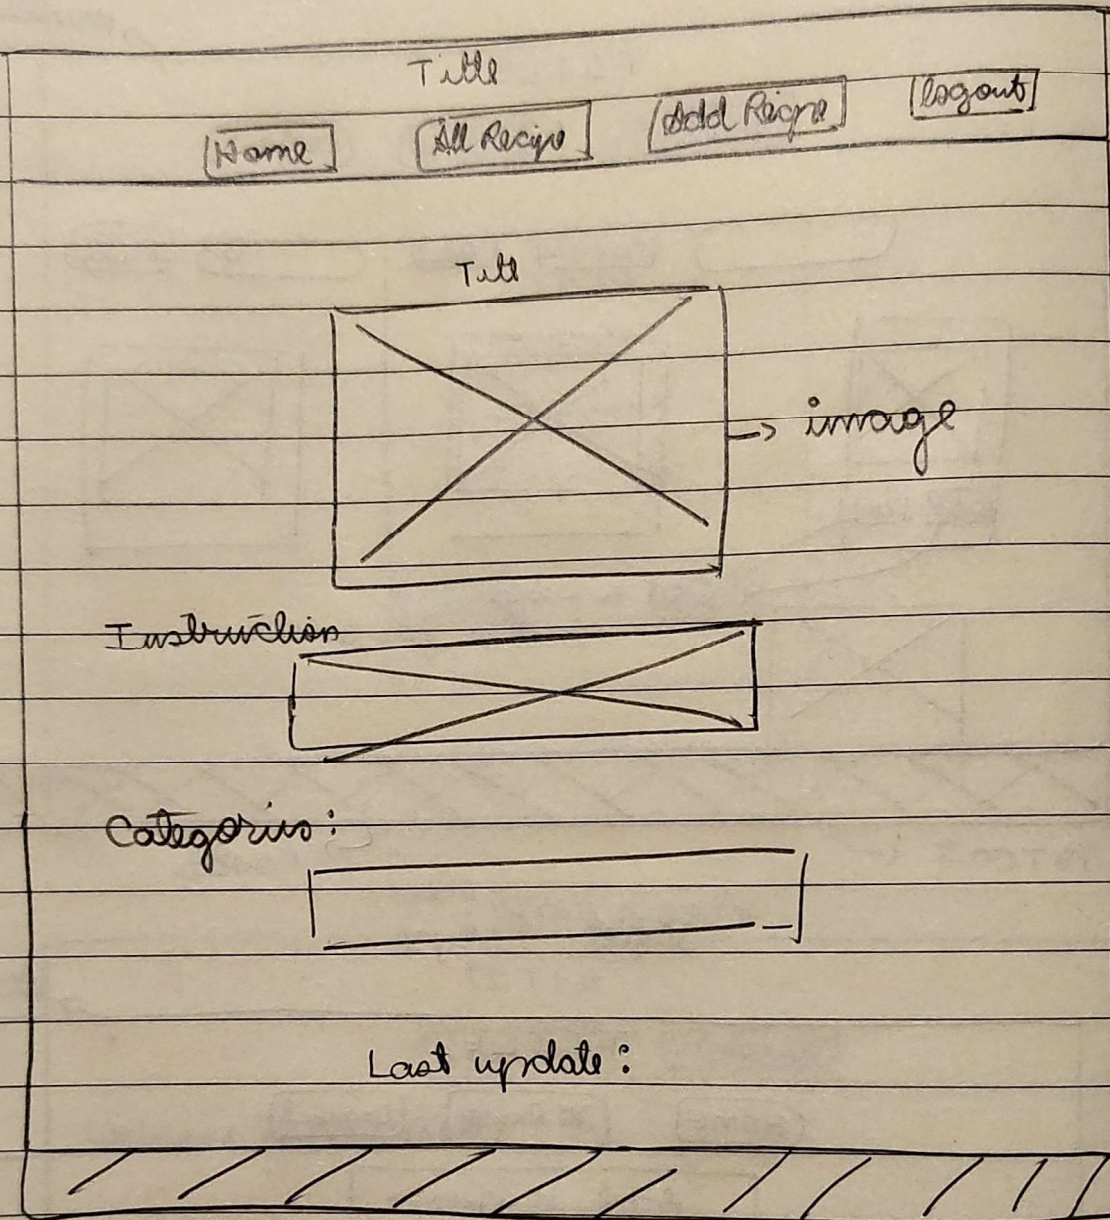 Title
Home All Recipe Add Recipe logout
Title
image
Instruction
Categories:
Last update: